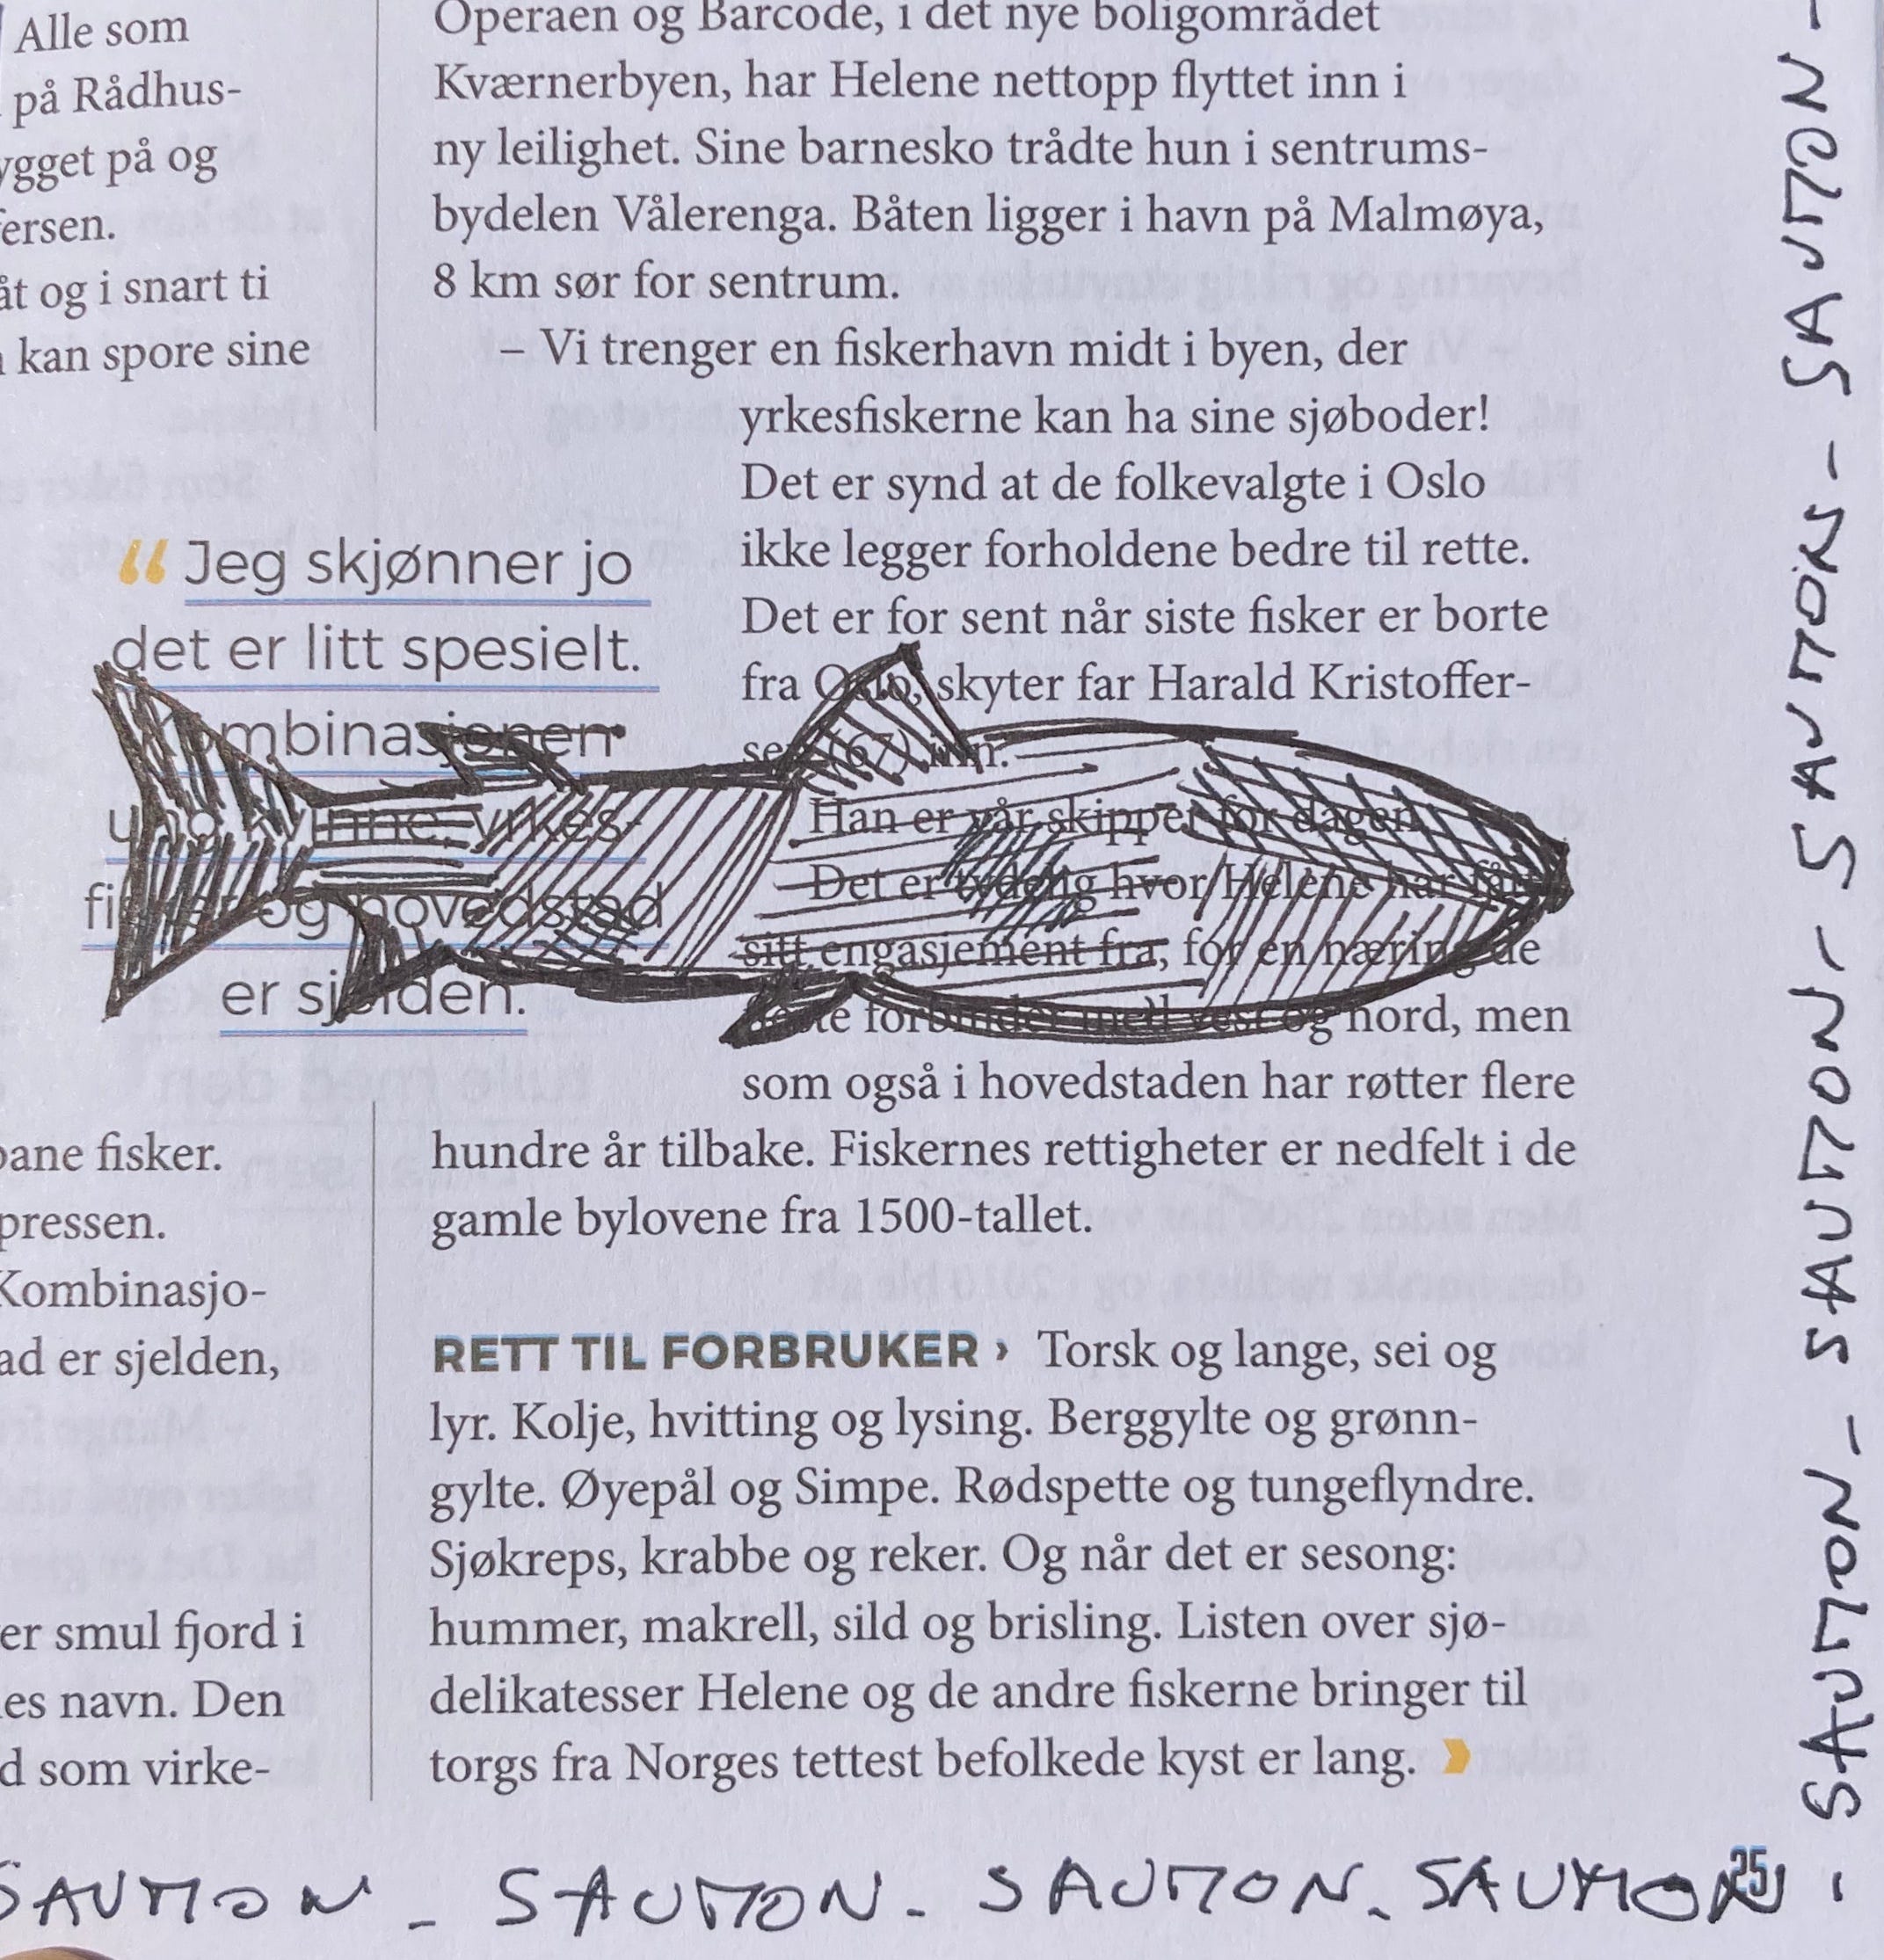 Alle som
på Rådhus-
ygget på og
ersen.
åt og i snart ti
kan spore sine
"Jeg skjønner jo
det er litt spesielt.
Kombinasjonen
ung kvinne, yrkes-
fisker og hovedstad
er sjelden.
bane fisker.
pressen.
Kombinasjo-
ad er sjelden,
er smul fjord i
es navn. Den
d som virke-
Operaen og Barcode, i det nye boligområdet
Kværnerbyen, har Helene nettopp flyttet inn i
ny leilighet. Sine barnesko trådte hun i sentrums-
bydelen Vålerenga. Båten ligger i havn på Malmøya,
8 km sør for sentrum.
– Vi trenger en fiskerhavn midt i byen, der
yrkesfiskerne kan ha sine sjøboder!
Det er synd at de folkevalgte i Oslo
ikke legger forholdene bedre til rette.
Det er for sent når siste fisker er borte
fra Oslo, skyter far Harald Kristoffer-
sen (67) inn.
Han er vår skipper for dagen.
Det er tydelig hvor Helene har fått
sitt engasjement fra, for en næring de
fleste forbinder med vest og nord, men
som også i hovedstaden har røtter flere
hundre år tilbake. Fiskernes rettigheter er nedfelt i de
gamle bylovene fra 1500-tallet.
RETT TIL FORBRUKER › Torsk og lange, sei og
lyr. Kolje, hvitting og lysing. Berggylte og grønn-
gylte. Øyepål og Simpe. Rødspette og tungeflyndre.
Sjøkreps, krabbe og reker. Og når det er sesong:
hummer, makrell, sild og brisling. Listen over sjø-
delikatesser Helene og de andre fiskerne bringer til
torgs fra Norges tettest befolkede kyst er lang.
SAUMON - SAUMON - SAUMON. SAUMON -
25
SAUMON - SAUMON - SAUMON - SAUMON - SAUMON -